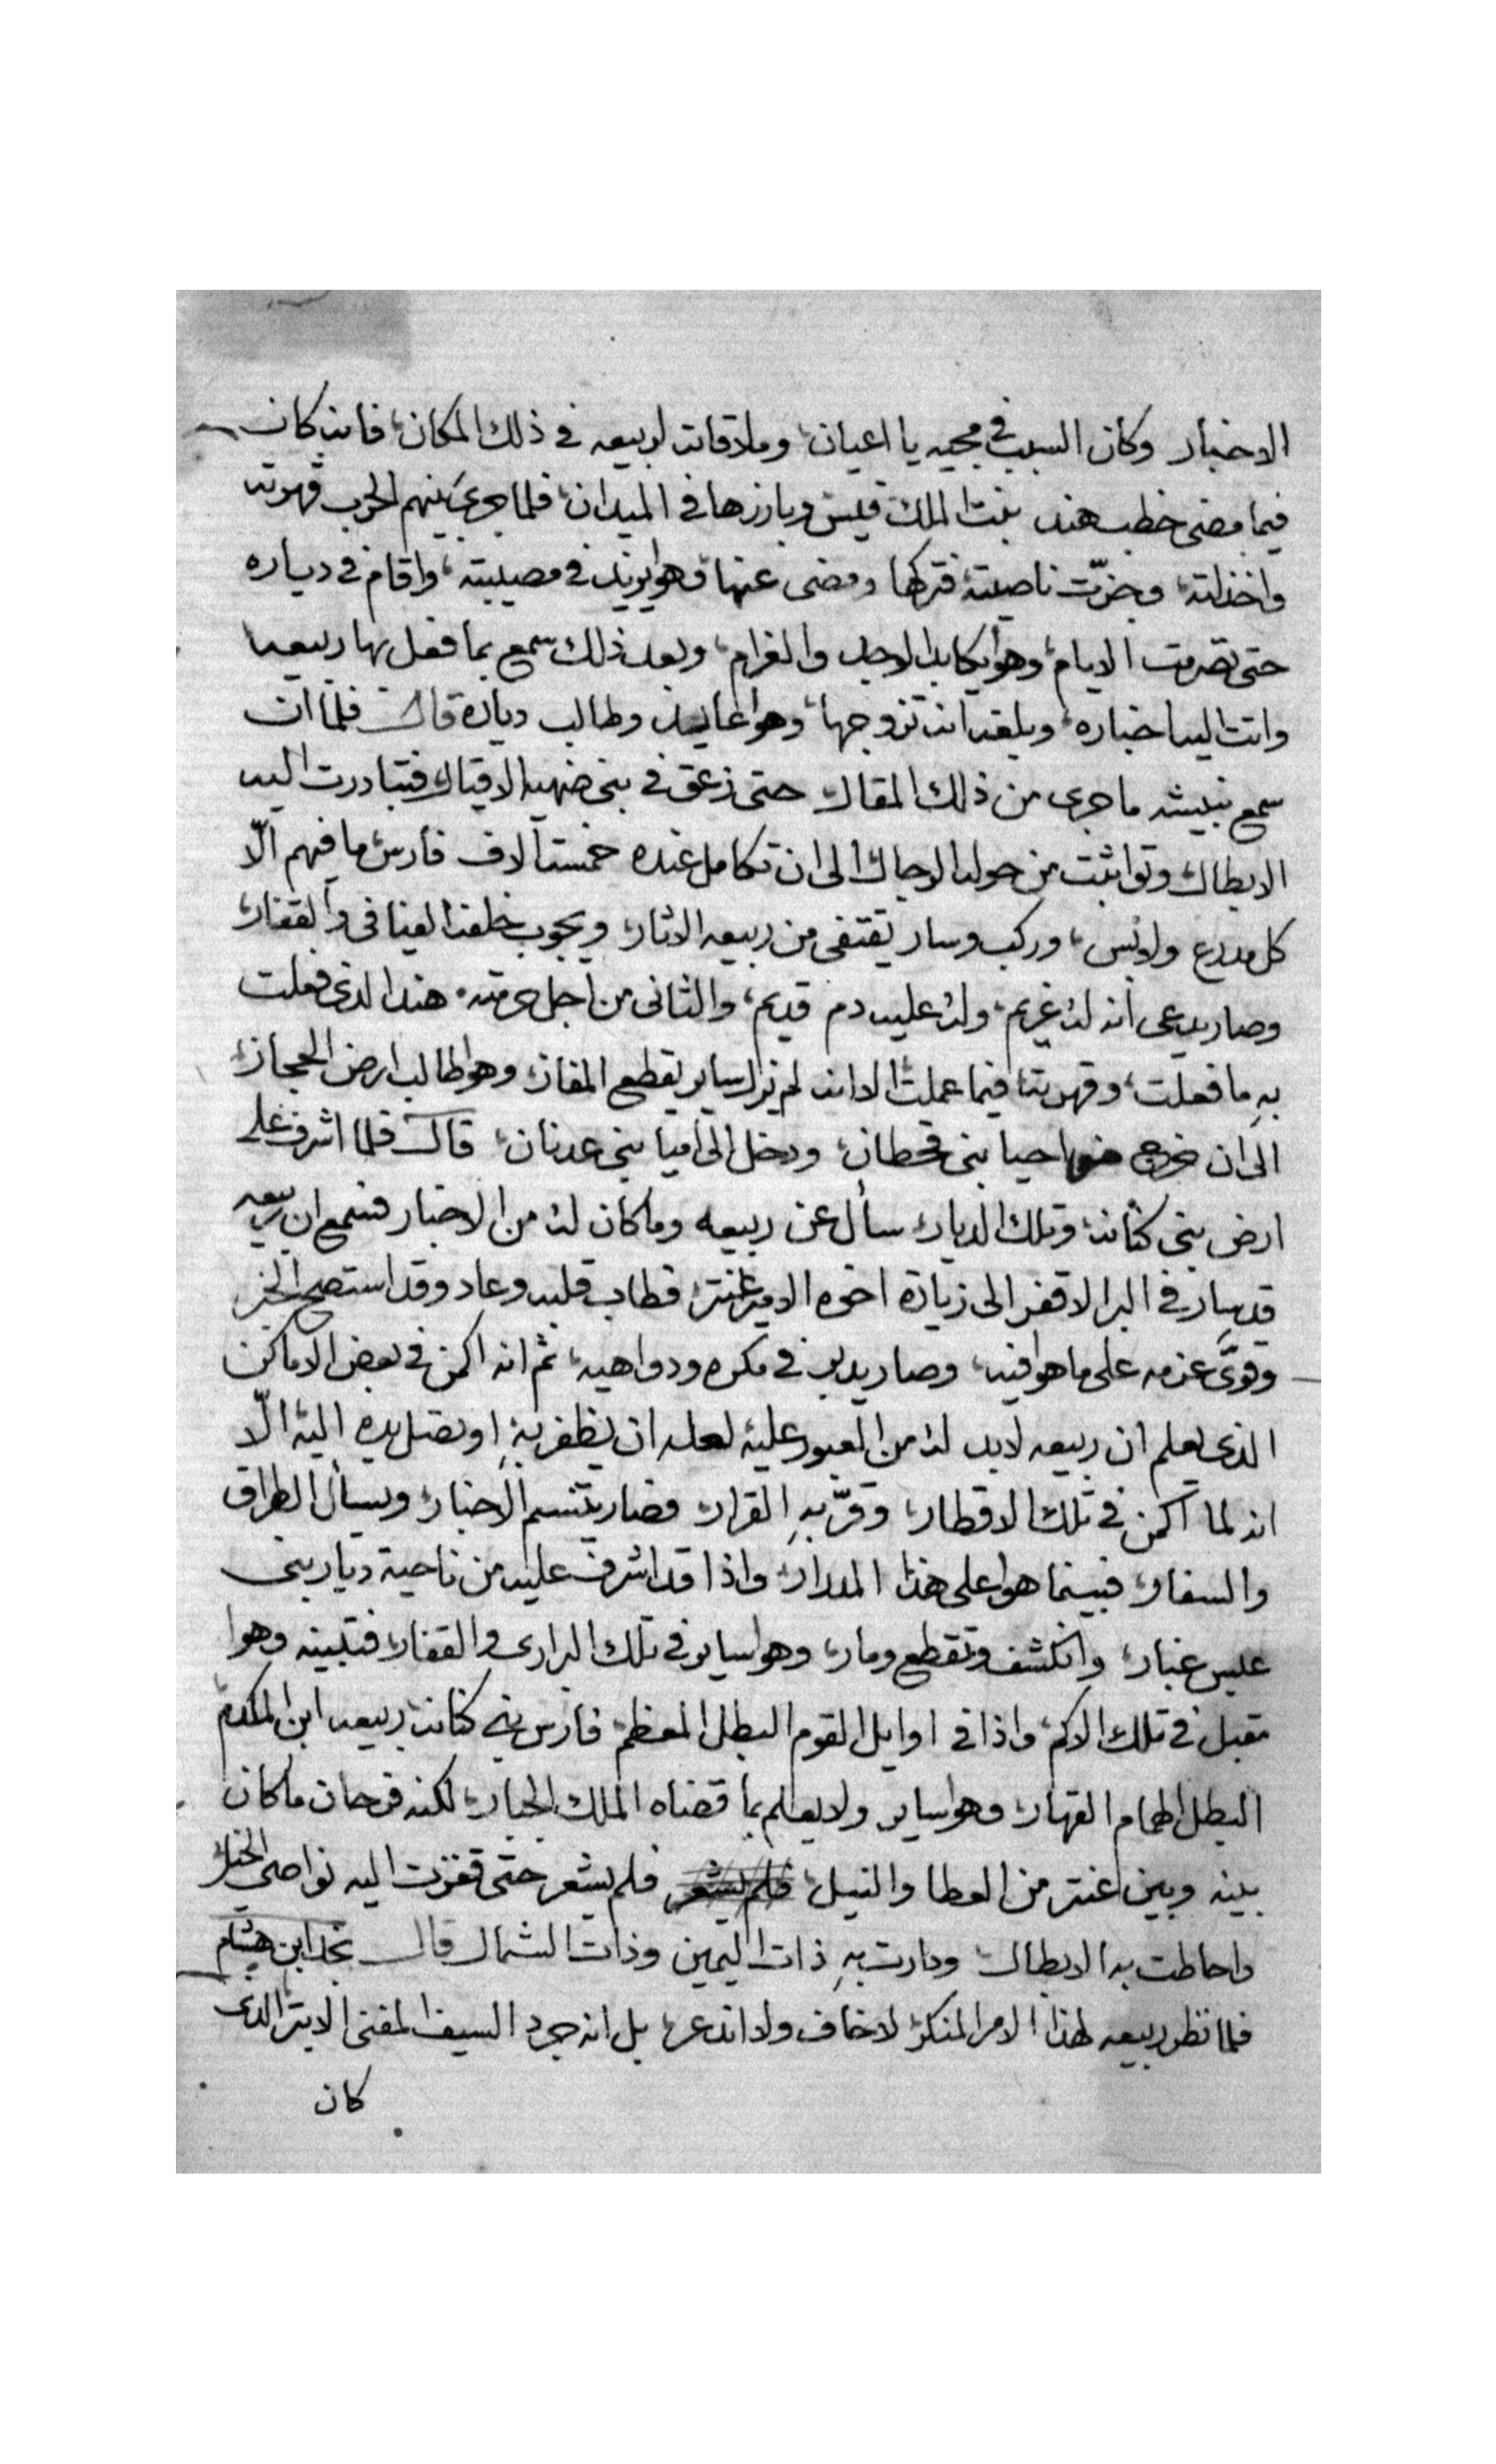 الاخبار وكان السبب في مجيه يا اعيان، وملاقاته لربيعه في ذلك المكان، فانه كان
فيما مضى خطب هند بنت الملك قيس وبارزها في الميدان، فلما جرى بينهم الحرب قهرته
واخذلته، وجزّت ناصيته فتركها ومضى عنها وهوا يزيد في مصيبته، واقام في دياره
حتى تصرمت الايام، وهوا يكابد الوجد والغرام، وبعد ذلك سمع بما فعل بها ربيعه
واتت اليه اخباره، وبلغه انه تزوجها، وهوا عايد وطالب دياره قال فلما ان
سمع نبيشه ما جرى من ذلك المقال حتى زعق في بني ضهيه الاقيال فتبادرت اليه
الابطال وتواثبت من حوله الرجال الى ان تكامل عنده خمسة آلاف فارس ما فيهم الّا
كل مدرع ولابس، وركب وسار يقتفى من ربيعه الاثار، ويجوب خلفه الفيافى والقفار،
وصار يدعى انه له غريم، وله عليه دم قديم، والثانى من اجل حرمته هند الذى فعلت
بهِ ما فعلت، وقهرته فيما عملت الا انه لم يزل ساير يقطع المفاز، وهوا طالب ارض الحجاز،
الى ان خرج من احيا بنى قحطان، ودخل الى احيا بنى عدنان، قال فلما اشرف على
ارض بنى كنانه، وتلك الديار، سأل عن ربيعه وما كان له من الاخبار فسمع ان ربيعه
قد سار في البر الاقفر الى زيارة اخوه الامير عنتر، فطاب قلبه وعاد وقد استصح الخبر
وقوّى عزمه على ما هوا فيه، وصار يدبر في مكره ودواهيه، ثم انه اكمن في بعض الاماكن
الذى يعلم ان ربيعه لابد له من العبور عليه لعله ان يظفر بهِ، او تصل يده اليه الّا
انه لما اكمن في تلك الاقطار، وقرّ بهِ القرار، فصار يتنسم الاخبار، ويسأل الطراق
والسفار، فبينما هوا على هذا المدار، واذا قد اشرف عليه من ناحية ديار بنى
عبس غبار، وانكشف وتقطع ومار، وهوا ساير في تلك البرارى والقفار، فتبينه وهوا
مقبل في تلك الاكم، واذا في اوايل القوم البطل المعظم، فارس بنى كنانه، ربيعه ابن المكدم
البطل الهمام القهار، وهوا ساير ولا يعلم بما قضاه الملك الجبار، لكنه فرحان ما كان
بينه وبين عنتر من العطا والنيل، فلم يشعر فلم يشعر حتى قفزت اليه نواصى الخيل
واحاطت به الابطال ودارت بهِ ذات اليمين وذات الشمال قال نجد ابن هشام
فلما نظر ربيعه لهذا الامر المنكر، لا خاف ولا انذعر، بل انه جرد السيف المفنى الابتر الذى
كان